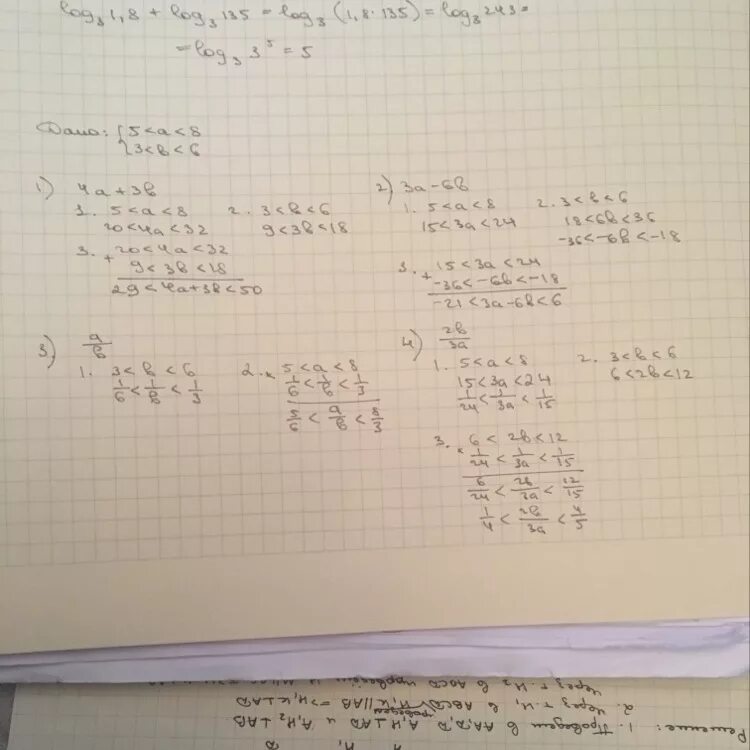 log₃ 1,8 + log₃ 135 = log₃ (1,8 · 135) = log₃ 243 =
= log₃ 3⁵ = 5
Дано: { 5 < a < 8
{ 3 < b < 6
1) 4a + 3b
1. 5 < a < 8
20 < 4a < 32
2. 3 < b < 6
9 < 3b < 18
3. + 20 < 4a < 32
9 < 3b < 18
29 < 4a + 3b < 50
2) 3a - 6b
1. 5 < a < 8
15 < 3a < 24
2. 3 < b < 6
18 < 6b < 36
-36 < -6b < -18
3. + 15 < 3a < 24
-36 < -6b < -18
-21 < 3a - 6b < 6
3) a/b
1. 3 < b < 6
1/6 < 1/b < 1/3
2. × 5 < a < 8
1/6 < 1/b < 1/3
5/6 < a/b < 8/3
4) 2b/3a
1. 5 < a < 8
15 < 3a < 24
1/24 < 1/3a < 1/15
2. 3 < b < 6
6 < 2b < 12
3. × 6 < 2b < 12
1/24 < 1/3a < 1/15
6/24 < 2b/3a < 12/15
1/4 < 2b/3a < 4/5
Решение: 1. Проведем в AA₁D₁D A₁H ⊥ AD и A₁H₂ ⊥ AB
2. Через т. H₁ в ABCD проведем H₁K || AB => H₁K ⊥ AD
Через т. H₂ в ABCD проведем